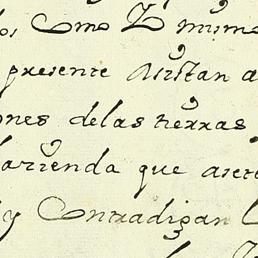 os Como Z mismo
presente asistan a
ones delas tierras
arrienda que
y Contradigan